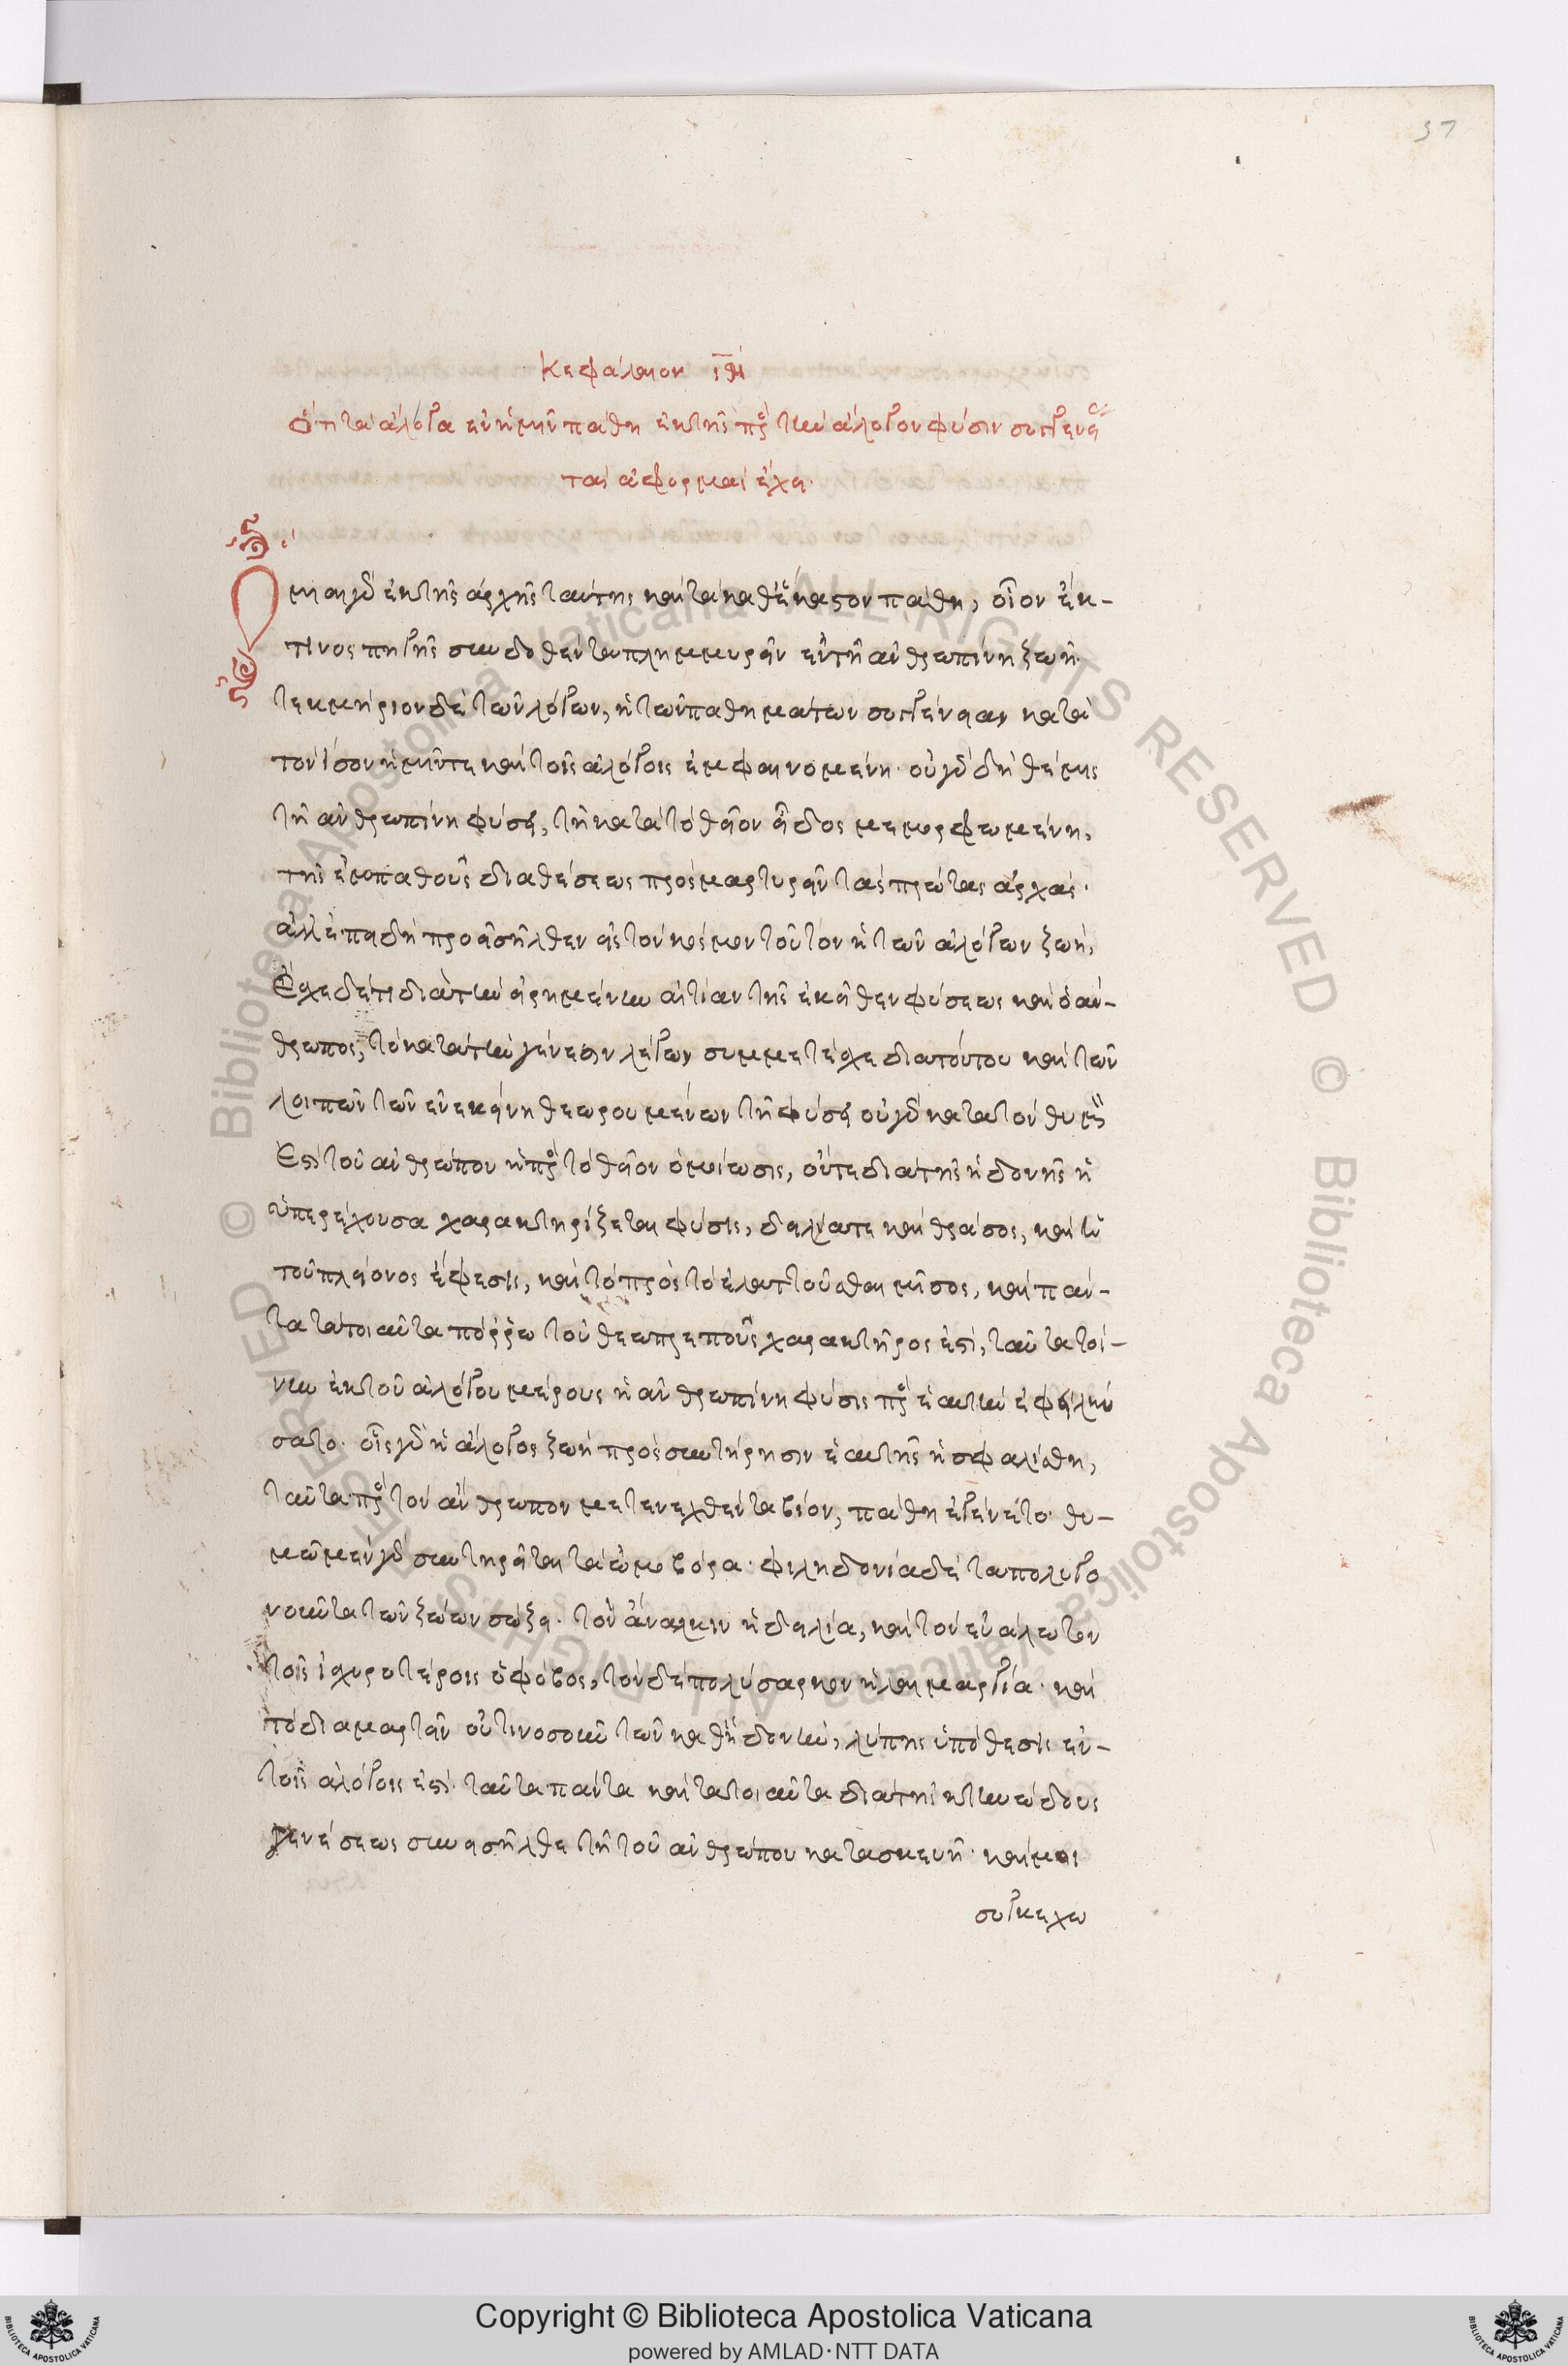 37
Κεφάλαιον ιη
ὅτι τὰ ἄλογα ἐν ἡμῖν πάθη ἐκ τῆς πρὸς τὴν ἄλογον φύσιν συγγενείας
τὰς ἀφορμὰς ἔχει.
Οἶμαι γὰρ ἐκ τῆς ἀρχῆς ταύτης καὶ τὰ καθέκαστον πάθη, οἷον ἔκ-
τινος πηγῆς συνδοθέντα πλημμυρεῖν ἐν τῇ ἀνθρωπίνῃ ζωῇ.
τεκμήριον δὲ τῶν λόγων, ἡ τῶν παθημάτων συγγένεια κατὰ
τὸν ἴσον ἡμῖν τε καὶ τοῖς ἀλόγοις ἐμφαινομένη. οὐ γὰρ δὴ θέμις
τῇ ἀνθρωπίνῃ φύσει, τῇ κατὰ τὸ θεῖον εἶδος μεμορφωμένῃ,
τῆς ἐμπαθοῦς διαθέσεως προσμαρτυρεῖν τὰς πρώτας ἀρχάς.
ἀλλ' ἐπειδὴ προεισῆλθεν εἰς τὸν κόσμον τοῦτον ἡ τῶν ἀλόγων ζωή,
Ἔσχε δέ τι διὰ τὴν εἰρημένην αἰτίαν τῆς ἐκεῖθεν φύσεως καὶ ὁ ἄν-
θρωπος, τὸ κατὰ τὴν γένεσιν λέγων συμμετέσχε διὰ τούτου καὶ τῶν
λοιπῶν τῶν ἐν ἐκείνῃ θεωρουμένων τῇ φύσει οὐ γὰρ κατὰ τὸν θυμόν
Ἐστὶ τοῦ ἀνθρώπου ἡ πρὸς τὸ θεῖον ὁμοίωσις, οὔτε διὰ τῆς ἡδονῆς ἡ
ὑπερέχουσα χαρακτηρίζεται φύσις, δειλία τε καὶ θράσος, καὶ ἡ
τοῦ πλείονος ἔφεσις, καὶ τὸ πρὸς τὸ ἐλαττοῦσθαι μῖσος, καὶ πάν-
τα τὰ τοιαῦτα πόρρω τοῦ θεωπρεποῦς χαρακτῆρος ἐστί, ταῦτα τοί-
νυν ἐκ τοῦ ἀλόγου μέρους ἡ ἀνθρωπίνη φύσις πρὸς ἑαυτὴν ἐφειλκύ
σατο. οἷς γὰρ ἡ ἄλογος ζωὴ πρὸς συντήρησιν ἑαυτῆς ἠσφαλίσθη,
ταῦτα πρὸς τὸν ἄνθρωπον μετενεχθέντα βίον, πάθη ἐγένετο. θυ-
μῷ μὲν γὰρ συντηρεῖται τὰ ὠμοβόρα. φιληδονία δὲ τὰ πολυγο
νοῦντα τῶν ζώων σώζει. τὸν ἄναλκιν ἡ δειλία, καὶ τὸν εὐάλωτον
τοῖς ἰσχυροτέροις ὁ φόβος, τὸν δὲ πολύσαρκον ἡ λαιμαργία. καὶ
τὸ διαμαρτεῖν οὑτινοσοῦν τῶν καθ' ἡδονήν, λύπης ὑπόθεσις ἐν-
τοῖς ἀλόγοις ἐστί. ταῦτα πάντα καὶ τὰ τοιαῦτα διὰ τῆς κτηνώδους
γενέσεως συνεισῆλθε τῇ τοῦ ἀνθρώπου κατασκευῇ. καί μοι
συγκεχω
Copyright © Biblioteca Apostolica Vaticana
powered by AMLAD·NTT DATA